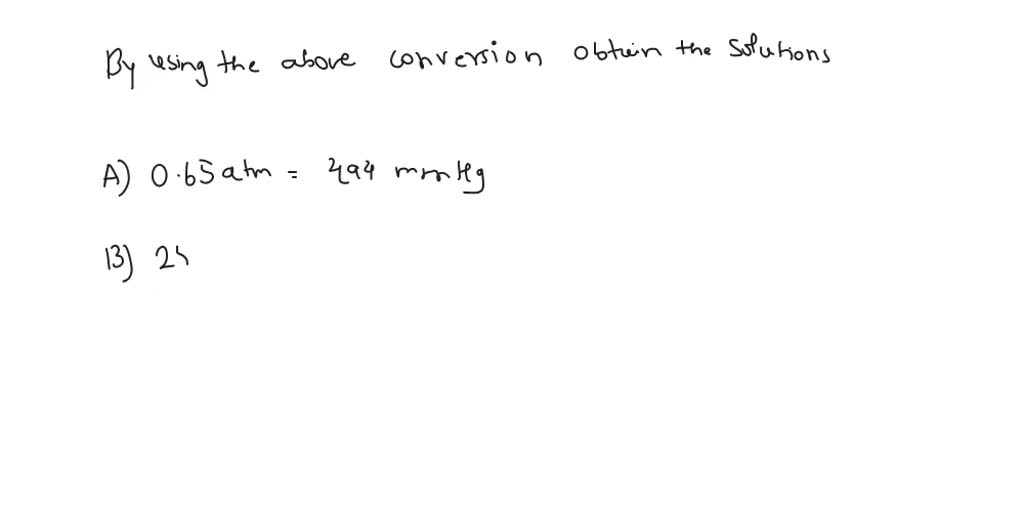 By using the above conversion obtain the solutions
A) 0.65 atm = 494 mmHg
B) 25